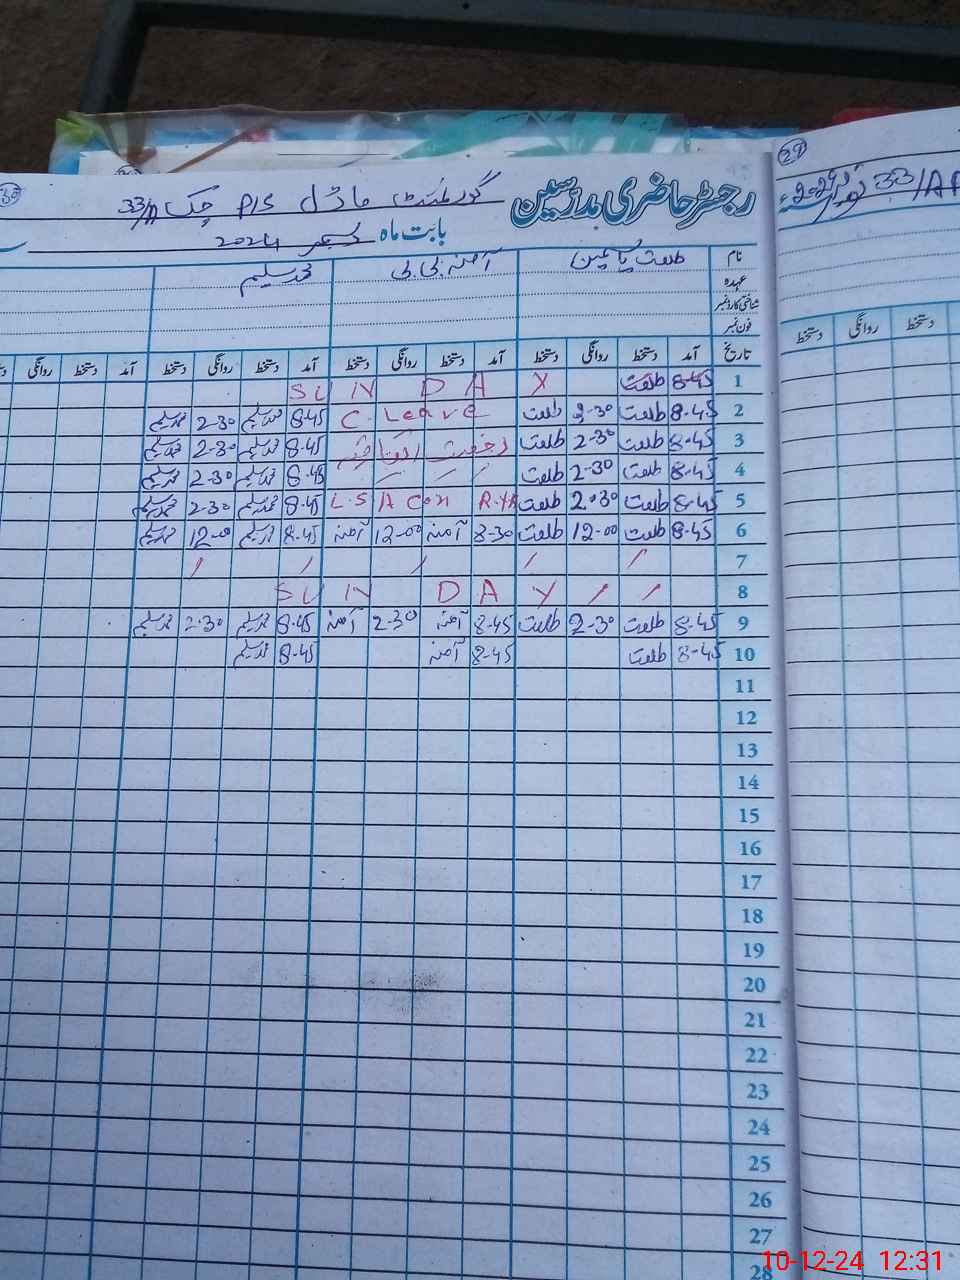 رجسٹر حاضری مدرسین گورنمنٹ ماڈل P/S چک 33/A
بابت ماہ دسمبر 2024
نام طلعت یاسمین آمنہ بی بی محمد سلیم
عہدہ
شناختی کارڈ نمبر
فون نمبر
تاریخ آمد دستخط روانگی دستخط آمد دستخط روانگی دستخط آمد دستخط روانگی دستخط آمد دستخط روانگی
1 8-45 طلعت SUNDAY
2 8-45 طلعت 2-30 طلعت C. Leave 8-45 محمد سلیم 2-30 محمد سلیم
3 8-45 طلعت 2-30 طلعت رخصت اتفاقیہ 8-45 محمد سلیم 2-30 محمد سلیم
4 8-45 طلعت 2-30 طلعت / / / 8-45 محمد سلیم 2-30 محمد سلیم
5 8-45 طلعت 2-30 طلعت L.S.A Con R.YK 8-45 محمد سلیم 2-30 محمد سلیم
6 8-45 طلعت 12-00 طلعت 8-30 آمنہ 12-00 آمنہ 8-45 محمد سلیم 12-00 محمد سلیم
7 / / / / /
8 SUNDAY / /
9 8-45 طلعت 2-30 طلعت 8-45 آمنہ 2-30 آمنہ 8-45 محمد سلیم 2-30 محمد سلیم
10 8-45 طلعت 8-45 آمنہ 8-45 محمد سلیم
11
12
13
14
15
16
17
18
19
20
21
22
23
24
25
26
27
28
29
33/A نومبر 2024ء
دستخط روانگی دستخط
10-12-24 12:31